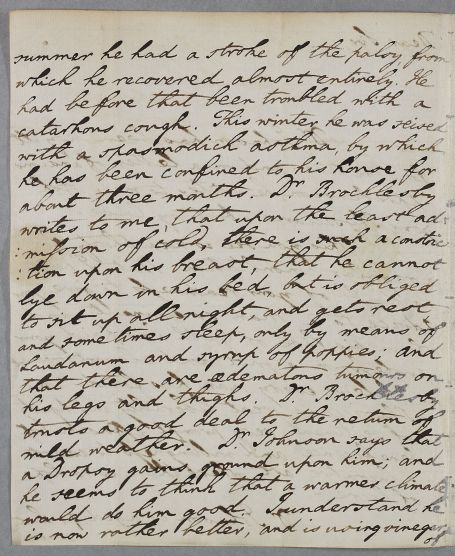 summer he had a stroke of the palsy from
which he recovered almost entirely. He
had before that been troubled with a
catarhous cough. This winter he was seised
with a spasmodick asthma, by which
he has been confined to his house for
about three months. Dr Brocklesby
writes to me, that upon the least ad
:mission of cold, there is such a constric
:tion upon his breast, that he cannot
lye down in his bed, but is obliged
to sit up all night, and gets rest
and sometimes sleep, only by means of
laudanum and syrup of poppies; and
that there are œdematous tumours on
his legs and thighs. Dr Brocklesby
trusts a good deal to the return of
mild weather. Dr Johnson says that
a Dropsy gains ground upon him; and
he seems to think that a warmer climate
would do him good. I understand he
is now rather better, and is using vinegar
of